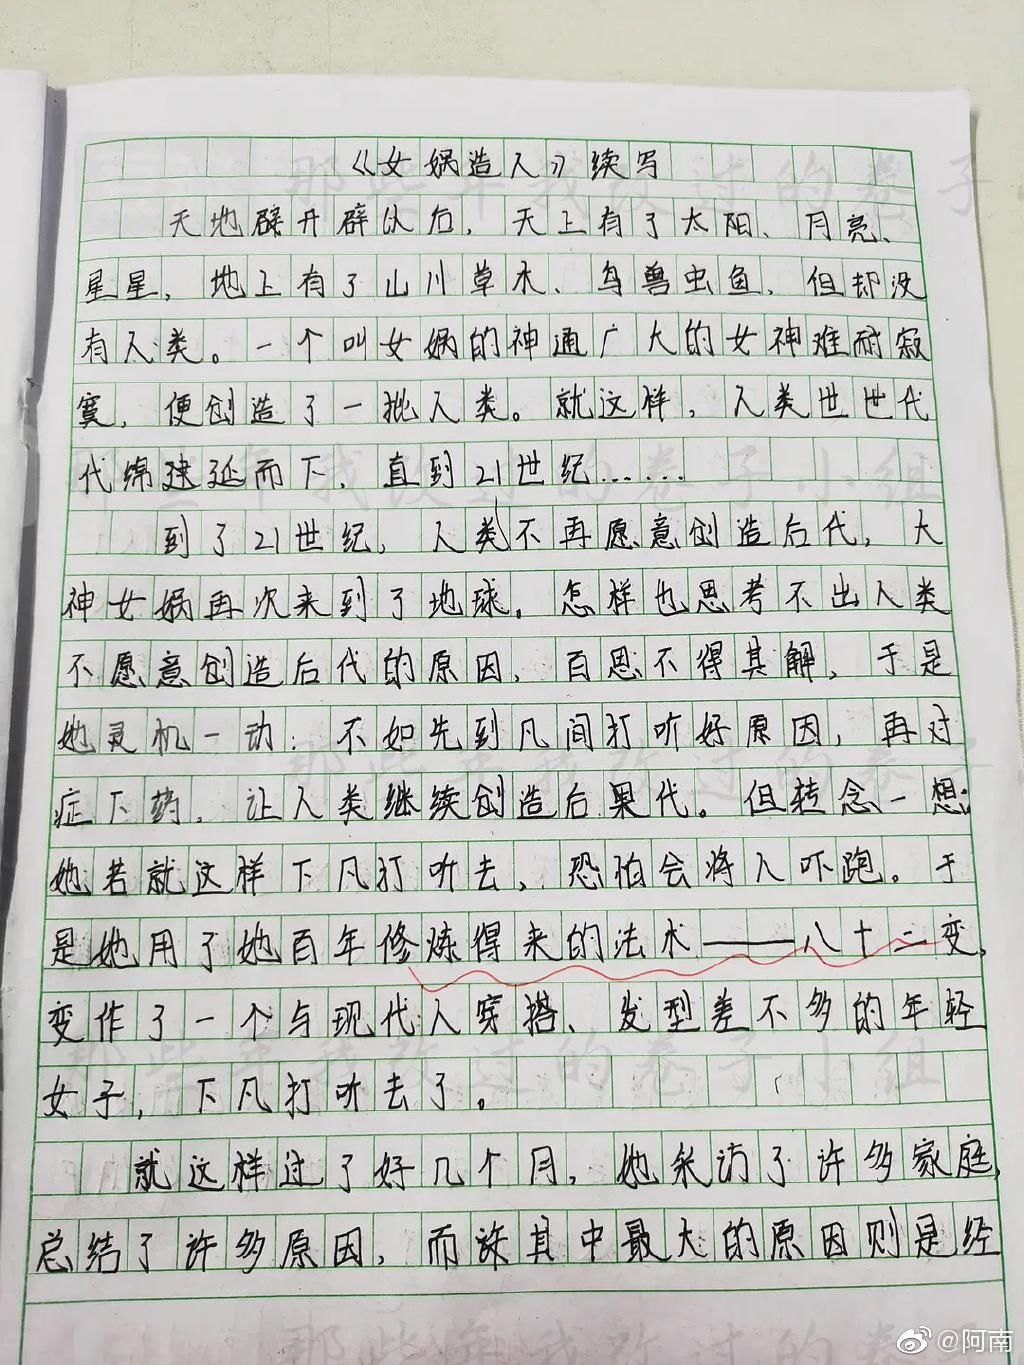 《女娲造人》续写
天地辟开辟以后，天上有了太阳、月亮、
星星，地上有了山川草木、鸟兽虫鱼，但却没
有人类。一个叫女娲的神通广大的女神难耐寂
寞，便创造了一批人类。就这样，人类世世代
代绵建延而下，直到21世纪……
到了21世纪，人类不再愿意创造后代，大
神女娲再次来到了地球。怎样也思考不出人类
不愿意创造后代的原因，百思不得其解，于是
她灵机一动：不如先到凡间打听好原因，再对
症下药，让人类继续创造后果代。但转念一想：
她若就这样下凡打听去，恐怕会将人吓跑。于
是她用了她百年修炼得来的法术——八十二变，
变作了一个与现代人穿搭、发型差不多的年轻
女子，下凡打听去了。
就这样过了好几个月，她采访了许多家庭，
总结了许多原因，而其中最大的原因则是经
那些年我改过的卷子小组
@阿南